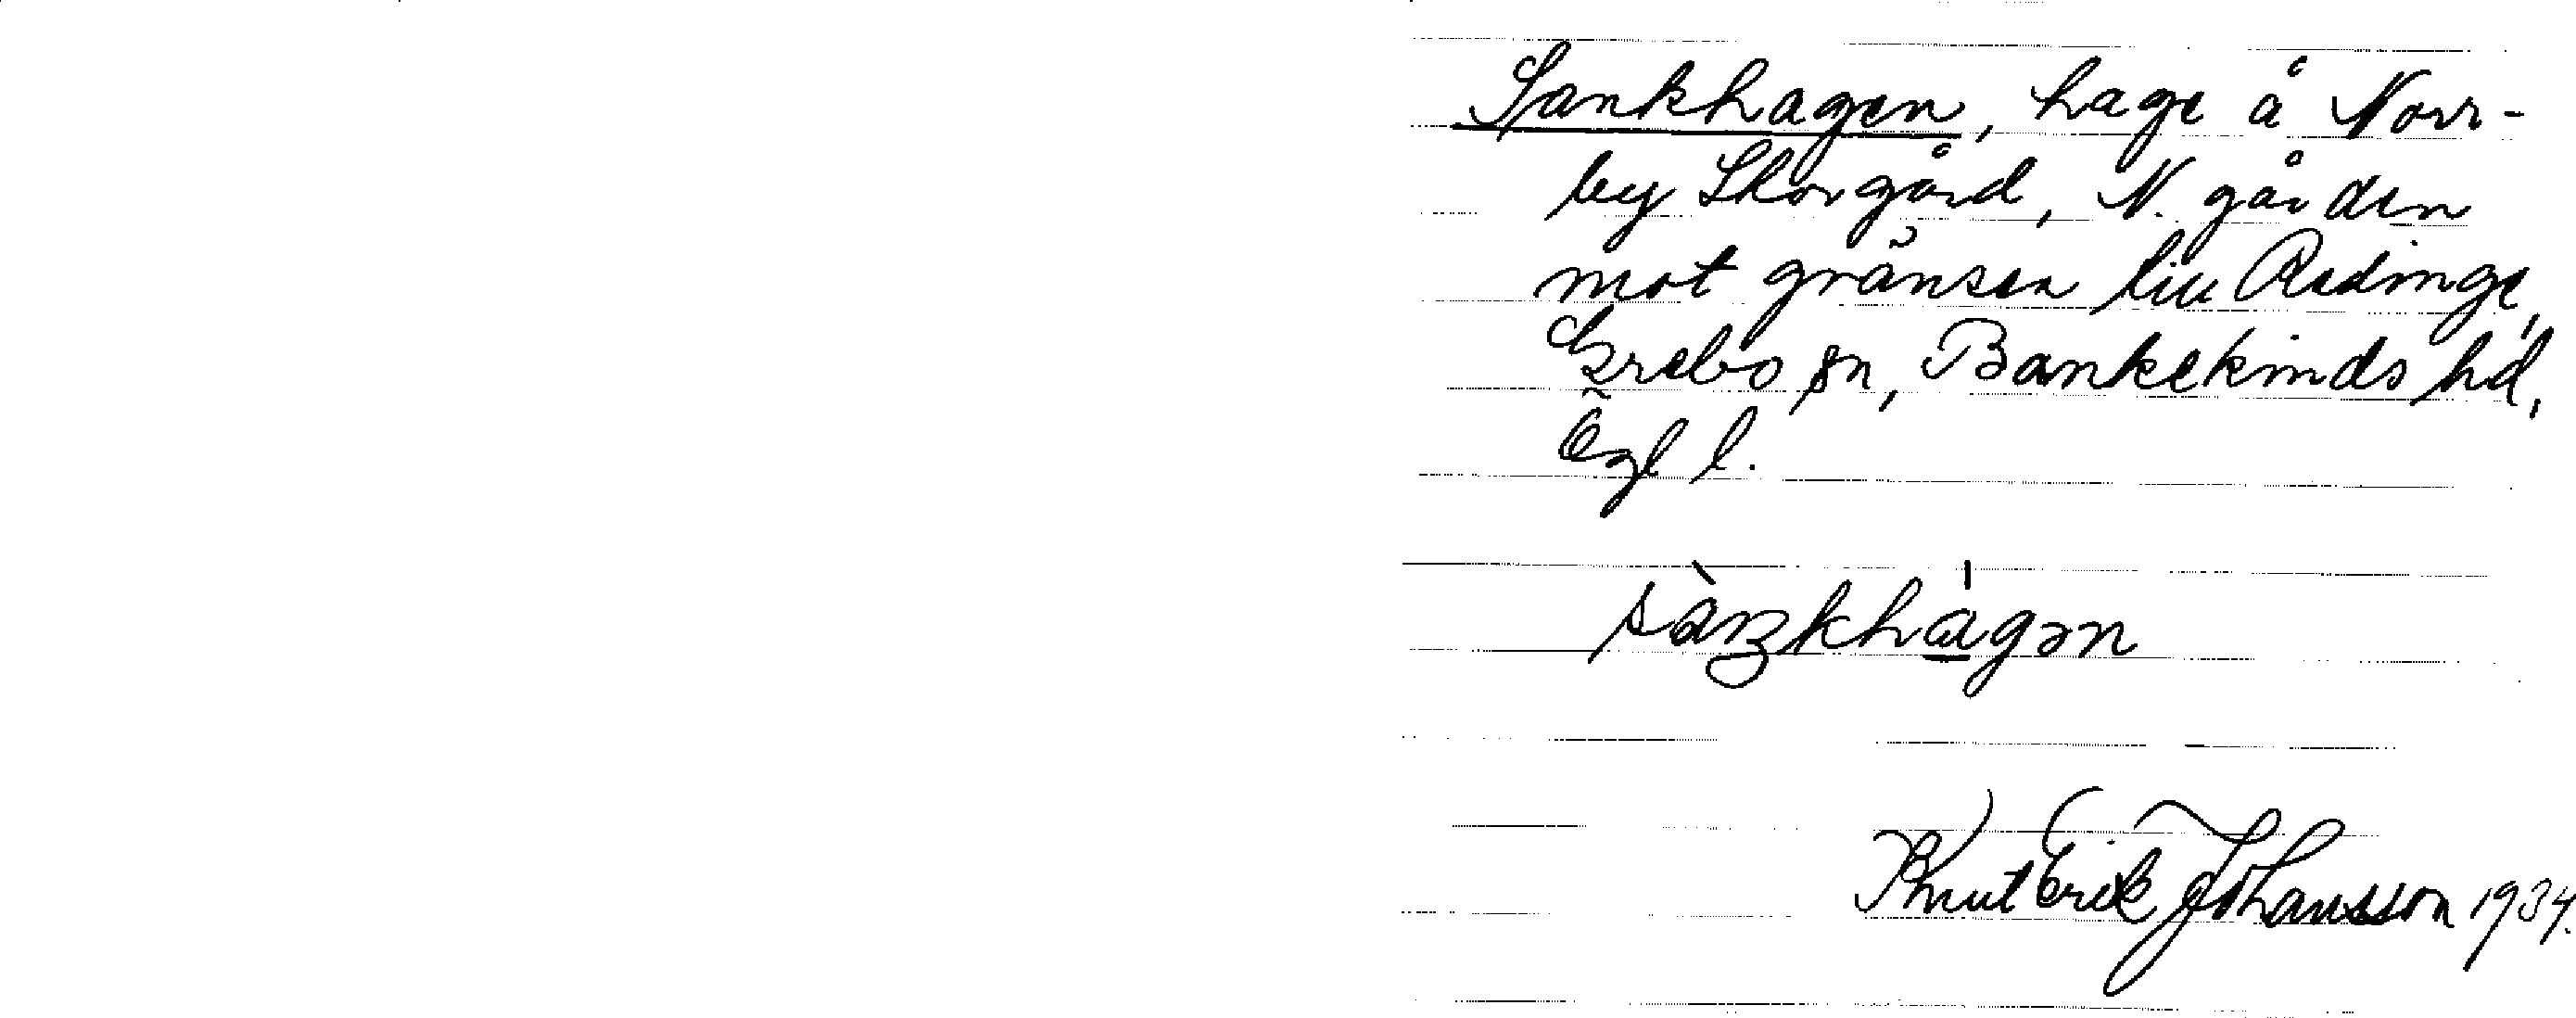 Sankhagen, hage å Norr-
by Storgård, N. gården
mot gränsen till Redinge,
Grebo sn, Bankekinds hd,
Ögl l.
sàŋkhágən
Knut Erik Johansson 1934.